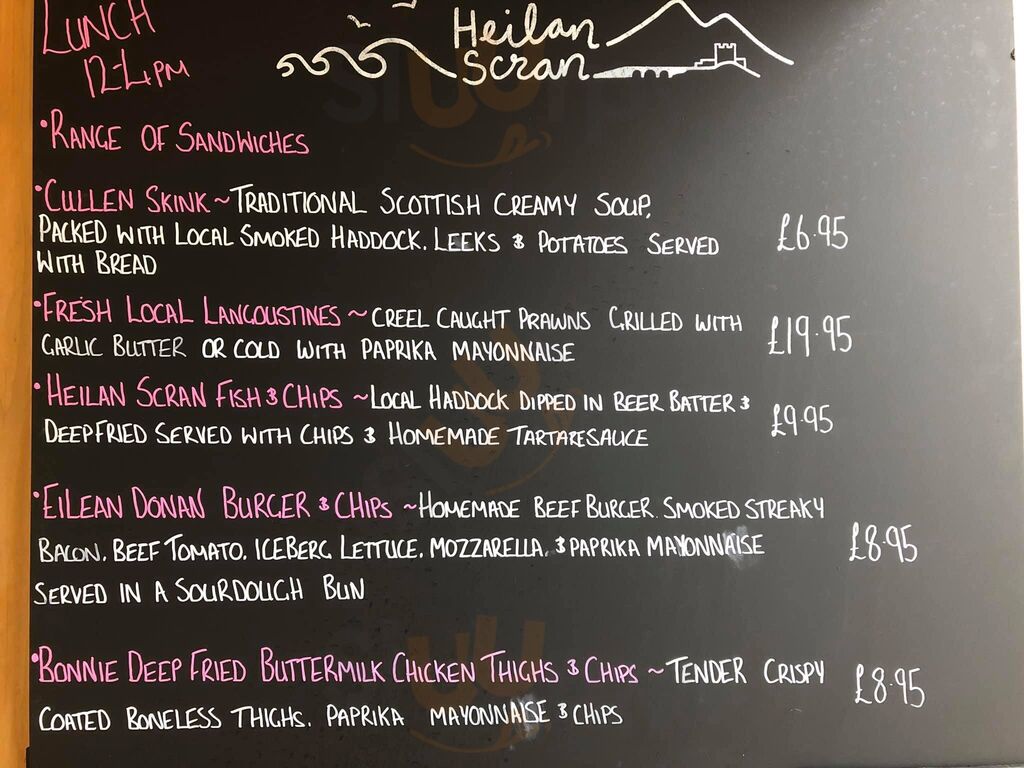 LUNCH
12-4PM
Heilan
Scran
•RANGE OF SANDWICHES
•CULLEN SKINK ~TRADITIONAL SCOTTISH CREAMY SOUP,
PACKED WITH LOCAL SMOKED HADDOCK, LEEKS & POTATOES SERVED
WITH BREAD
£6.95
•FRESH LOCAL LANGOUSTINES ~CREEL CAUGHT PRAWNS GRILLED WITH
GARLIC BUTTER OR COLD WITH PAPRIKA MAYONNAISE
£19.95
•HEILAN SCRAN FISH & CHIPS ~LOCAL HADDOCK DIPPED IN BEER BATTER &
DEEPFRIED SERVED WITH CHIPS & HOMEMADE TARTARESAUCE
£9.95
•EILEAN DONAN BURGER & CHIPS ~HOMEMADE BEEF BURGER. SMOKED STREAKY
BACON, BEEF TOMATO, ICEBERG LETTUCE, MOZZARELLA, & PAPRIKA MAYONNAISE
SERVED IN A SOURDOUGH BUN
£8.95
•BONNIE DEEP FRIED BUTTERMILK CHICKEN THIGHS & CHIPS ~TENDER CRISPY
COATED BONELESS THIGHS, PAPRIKA MAYONNAISE & CHIPS
£8.95